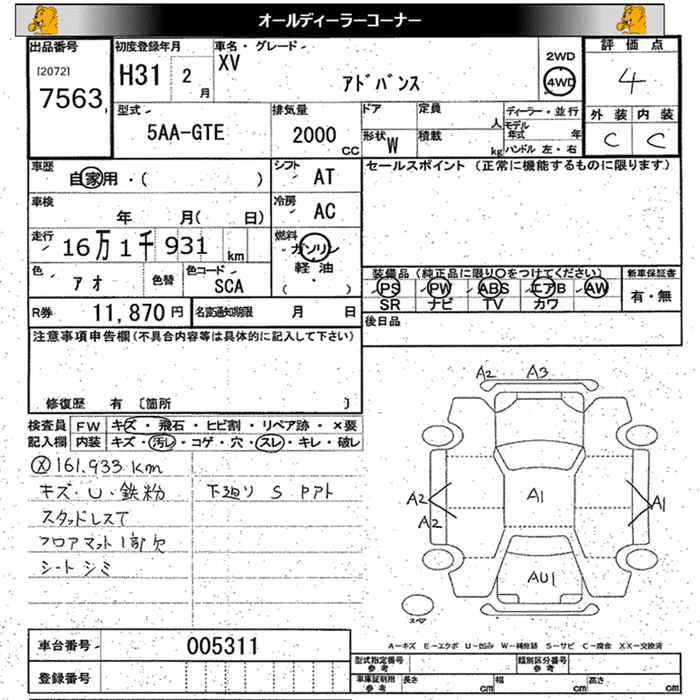 オールディーラーコーナー
出品番号 初度登録年月 車名・グレード 2WD 評価点
[2072] H31 2月 XV アドバンス 4WD 4
7563
型式 排気量 ドア 定員 人 ディーラー・並行 外装 内装
5AA-GTE 2000cc 形状 W 積載 kg モデル年式 年 C C
ハンドル 左・右
車歴 自家用・( ) シフト AT セールスポイント (正常に機能するものに限ります)
車検 年 月( 日) 冷房 AC
走行 16万1千931km 燃料 ガソリン
軽油・
( )
色 アオ 色替 色コード SCA 装備品 (純正品に限り○をつけてください) 新車保証書
PS PW ABS エアB AW 有・無
SR ナビ TV カワ
R券 11,870円 名変通知期限 月 日 後日品
注意事項申告欄(不具合内容等は具体的に記入して下さい)
修復歴 有 〔箇所 〕
検査員 FW キズ・飛石・ヒビ割・リペア跡・×要
記入欄 内装 キズ・汚レ・コゲ・穴・スレ・キレ・破レ
Ⓧ161,933km
キズ・U・鉄粉 下廻り S Pアト
スタッドレスT
フロアマット1部欠
シートシミ
A2 A3
A2 A1 A1
A2
AU1
スペア
車台番号 005311
登録番号
A=キズ E=エクボ U=凹み W=補修跡 S=サビ C=腐食 XX=交換済
型式指定番号 参考 類別区分番号 参考
車庫証明用 参考 長さ cm 幅 cm 高さ cm